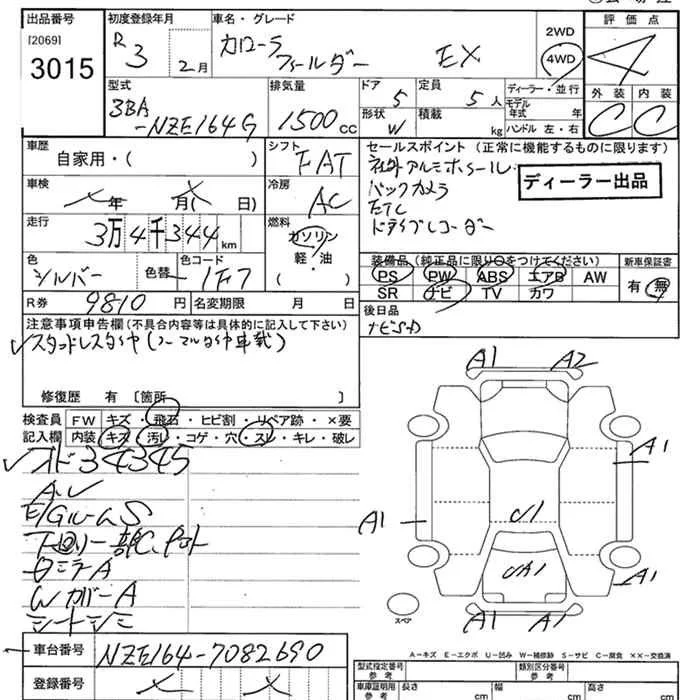 出品番号 初度登録年月 車名・グレード 評価点
[2069] 3015
R3 2月 カローラ フィールダー EX 2WD 4WD 4
型式 排気量 ドア 定員 ディーラー・並行 外装 内装
3BA-NZE164G 1500cc 5 5人 モデル年式 年 C C
形状 W 積載 kg ハンドル 左・右
車歴 シフト セールスポイント (正常に機能するものに限ります)
自家用・( ) FAT
社外アルミホイール
バックカメラ
ETC
ドライブレコーダー
ディーラー出品
車検 冷房
年 月( 日) AC
走行 燃料
3万4千344km ガソリン
軽・油
( )
色 色替 色コード
シルバー 1F7
装備品 (純正品に限り○をつけてください) 新車保証書
PS PW ABS エアB AW 有・無
SR ナビ TV カワ
R券 9810円 名変期限 月 日
後日品
ナビSD
注意事項申告欄(不具合内容等は具体的に記入して下さい)
スタッドレスタイヤ(ノーマルタイヤ車載)
修復歴 有 〔箇所 〕
検査員 FW キズ・飛石・ヒビ割・リペア跡・×要
記入欄 内装 キズ・汚レ・コゲ・穴・スレ・キレ・破レ
オド34345
E/GルームS
下回り一部C、
WカバーA
シートシミ
A1 A2
A1
A1
U1
UA1
A1
A1 A1
スペア
A-キズ E-エクボ U-凹み W-補修跡 S-サビ C-腐食 ××-交換済
車台番号 NZE164-7082690
登録番号
型式指定番号 参考 類別区分番号 参考
車庫証明用 参考 長さ cm 幅 cm 高さ cm